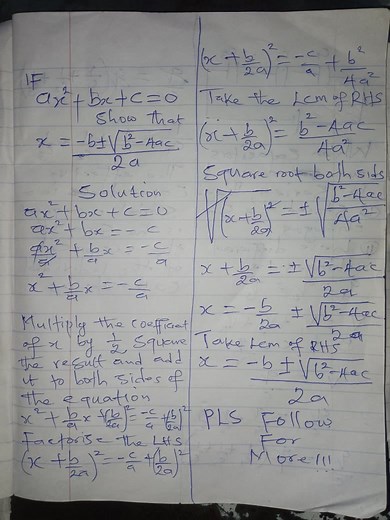 IF
ax² + bx + c = 0
Show that
x = -b ± √b² - 4ac / 2a
Solution
ax² + bx + c = 0
ax² + bx = -c
ax²/a + b/a x = -c/a
x² + b/a x = -c/a
Multiply the coefficient
of x by 1/2 Square
the result and add
it to both sides of
the equation
x² + b/a x + (b/2a)² = -c/a + (b/2a)²
Factorise the LHS
(x + b/2a)² = -c/a + (b/2a)²
(x + b/2a)² = -c/a + b²/4a²
Take the Lcm of RHS
(x + b/2a)² = b² - 4ac / 4a²
Square root both sids
√(x + b/2a)² = ± √b² - 4ac / 4a²
x + b/2a = ± √b² - 4ac / 2a
x = -b/2a ± √b² - 4ac / 2a
Take Lcm of RHS
x = -b ± √b² - 4ac / 2a
PLS Follow
For
More!!!